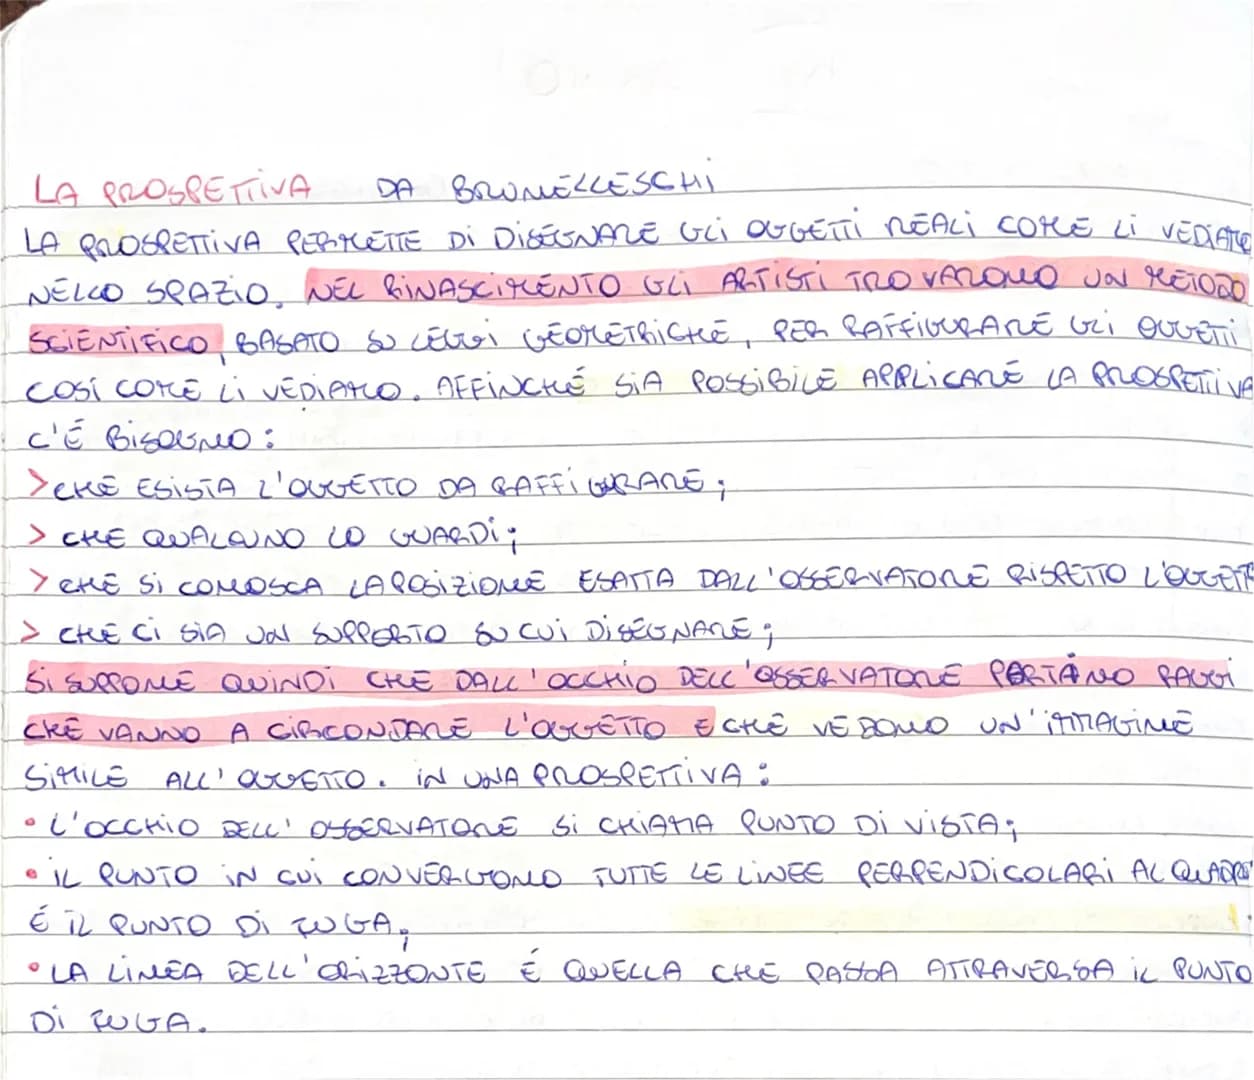 LA PROSPETTIVA DA BRUNELLESCHI
LA PROSPETTIVA PERMETTE DI DISEGNARE GLI OGGETTI REALI COME LI VEDIAMO
NELLO SPAZIO. NEL RINASCIMENTO GLI ARTISTI TROVARONO UN METODO
SCIENTIFICO, BASATO SU LEGGI GEOMETRICHE, PER RAFFIGURARE GLI OGGETTI
COSÍ COME LI VEDIAMO. AFFINCHÉ SIA POSSIBILE APPLICARE LA PROSPETTIVA
C'É BISOGNO:
> CHE ESISTA L'OGGETTO DA RAFFIGURARE;
> CHE QUALCUNO LO GUARDI;
> CHE SI CONOSCA LA POSIZIONE ESATTA DALL'OSSERVATORE RISPETTO L'OGGETTO
> CHE CI SIA UN SUPPORTO SU CUI DISEGNARE;
SI SUPPONE QUINDI CHE DALL'OCCHIO DELL'OSSERVATORE PARTANO RAGGI
CHE VANNO A CIRCONDARE L'OGGETTO E CHE VEDONO UN'IMMAGINE
SIMILE ALL'OGGETTO. IN UNA PROSPETTIVA:
• L'OCCHIO DELL'OSSERVATORE SI CHIAMA PUNTO DI VISTA;
• IL PUNTO IN CUI CONVERGONO TUTTE LE LINEE PERPENDICOLARI AL QUADRO
É IL PUNTO DI FUGA;
• LA LINEA DELL'ORIZZONTE É QUELLA CHE PASSA ATTRAVERSA IL PUNTO
DI FUGA.